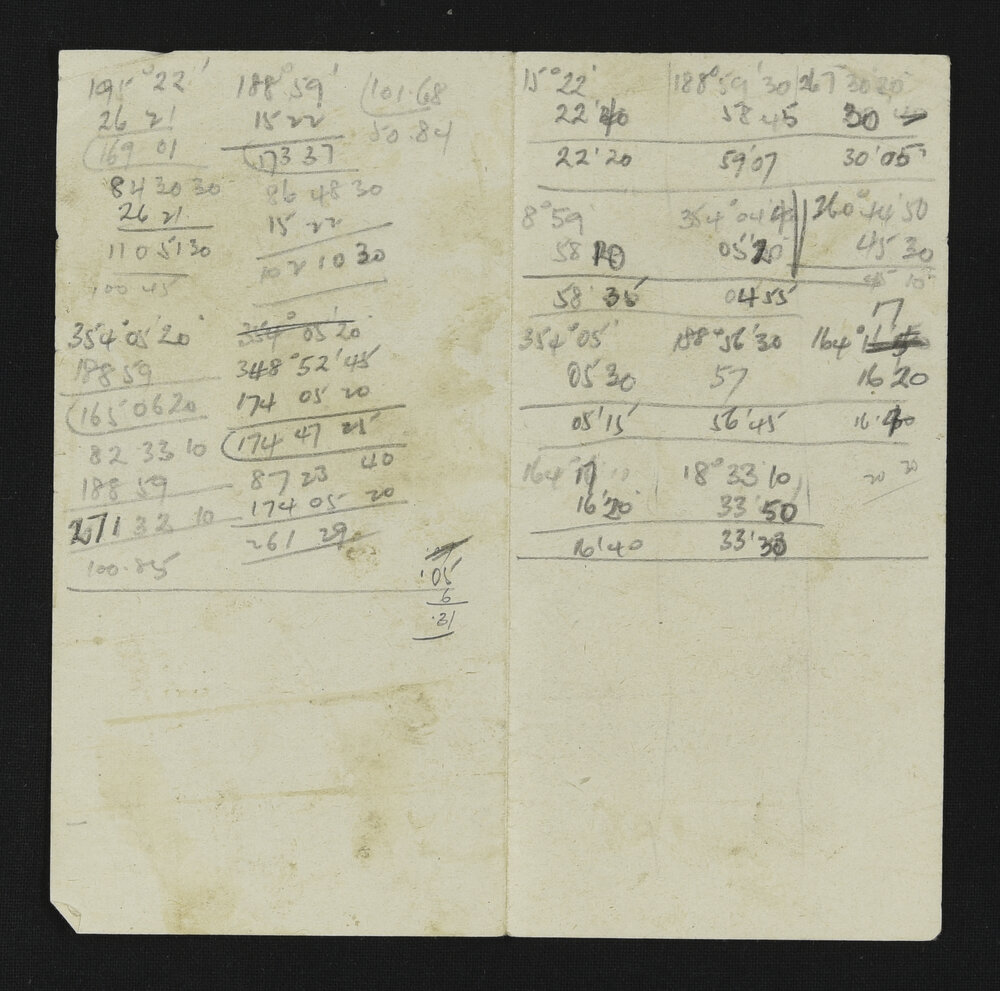 195°22'
26 21
169 01
84 30 30
26 21
110 51 30
100 45
188°59'
15 22
173 37
86 48 30
15 22
102 10 30
101.68
50.84
354°05'20"
188 59
165 06 20
82 33 10
188 59
271 32 10
100.85
354°05'20"
348°52'45"
174 05 20
174 47 25
40
87 23
174 05 20
261 29
.05
6
.31
15°22'
22'40
22'20
188°59'30
58 45
59'07
267 30 20
30
30'05"
8°59'
58 10
58 35
354°04'40
05'10
04 55
260°44'50
45 30
45 10"
354°05'
05'30
05'15
188°56'30
57
56'45
17
164°
16'20
16'40
164°17
16'20
16'40
18°33'10
33'50
33'30
20 20